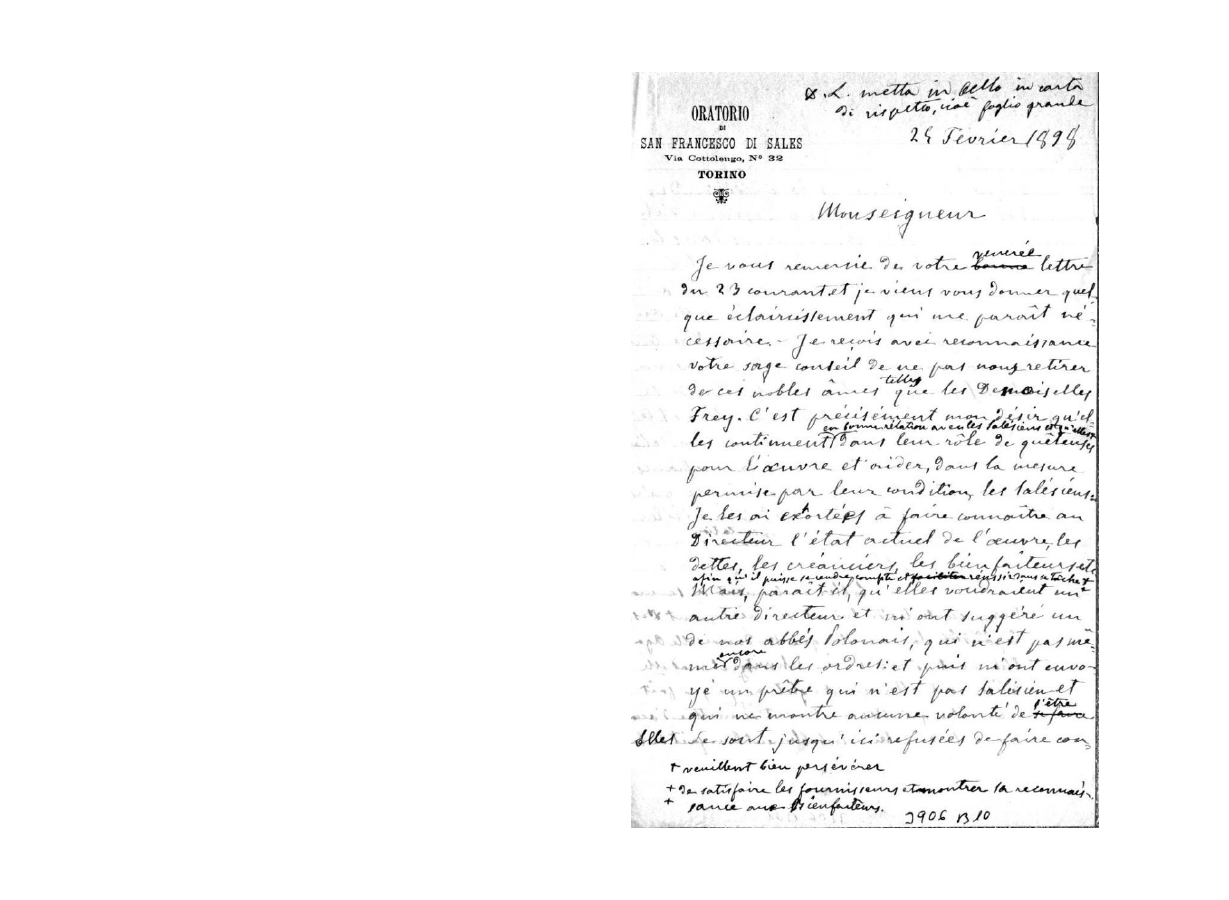 D. L. metta in bello in carta
di rispetto, cioè foglio grande
ORATORIO
DI
SAN FRANCESCO DI SALES
Via Cottolengo, N° 32
TORINO
Février 1898
Monseigneur
vénérée
Je vous remercie de votre bonne lettre
du 23 courant et je viens vous donner quel-
que éclaircissement qui me paraît né-
cessaire. - Je reçois avec reconnaissance
votre sage conseil de ne pas nous retirer
telles
de ces nobles âmes que les Demoiselles
Frey. C'est précisément mon désir qu'el-
en bonne relation avec les Salésiens et qu'elles +
les continuent dans leur rôle de quêteuses
pour l'œuvre et aider, dans la mesure
permise par leur condition, les Salésiens.
Je les ai exortées à faire connaître au
Directeur l'état actuel de l'œuvre, les
dettes, les créanciers, les bienfaiteurs etc
afin qu'il puisse se rendre compte et faciliter réussir dans sa tâche +
Mais, paraît-il, qu'elles voudraient un
autre directeur et m'ont suggéré un
de nos abbés Polonais, qui n'est pas mê-
encore
me dans les ordres: et puis m'ont envo-
yé un prêtre qui n'est pas Salésien et
l'être
qui ne montre aucune volonté de se faire
Elles se sont jusqu'ici refusées de faire con-
+ veuillent bien persévérer
+ de satisfaire les fournisseurs et montrer sa reconnais-
+ sance aux Bienfaiteurs.
3906 B 10